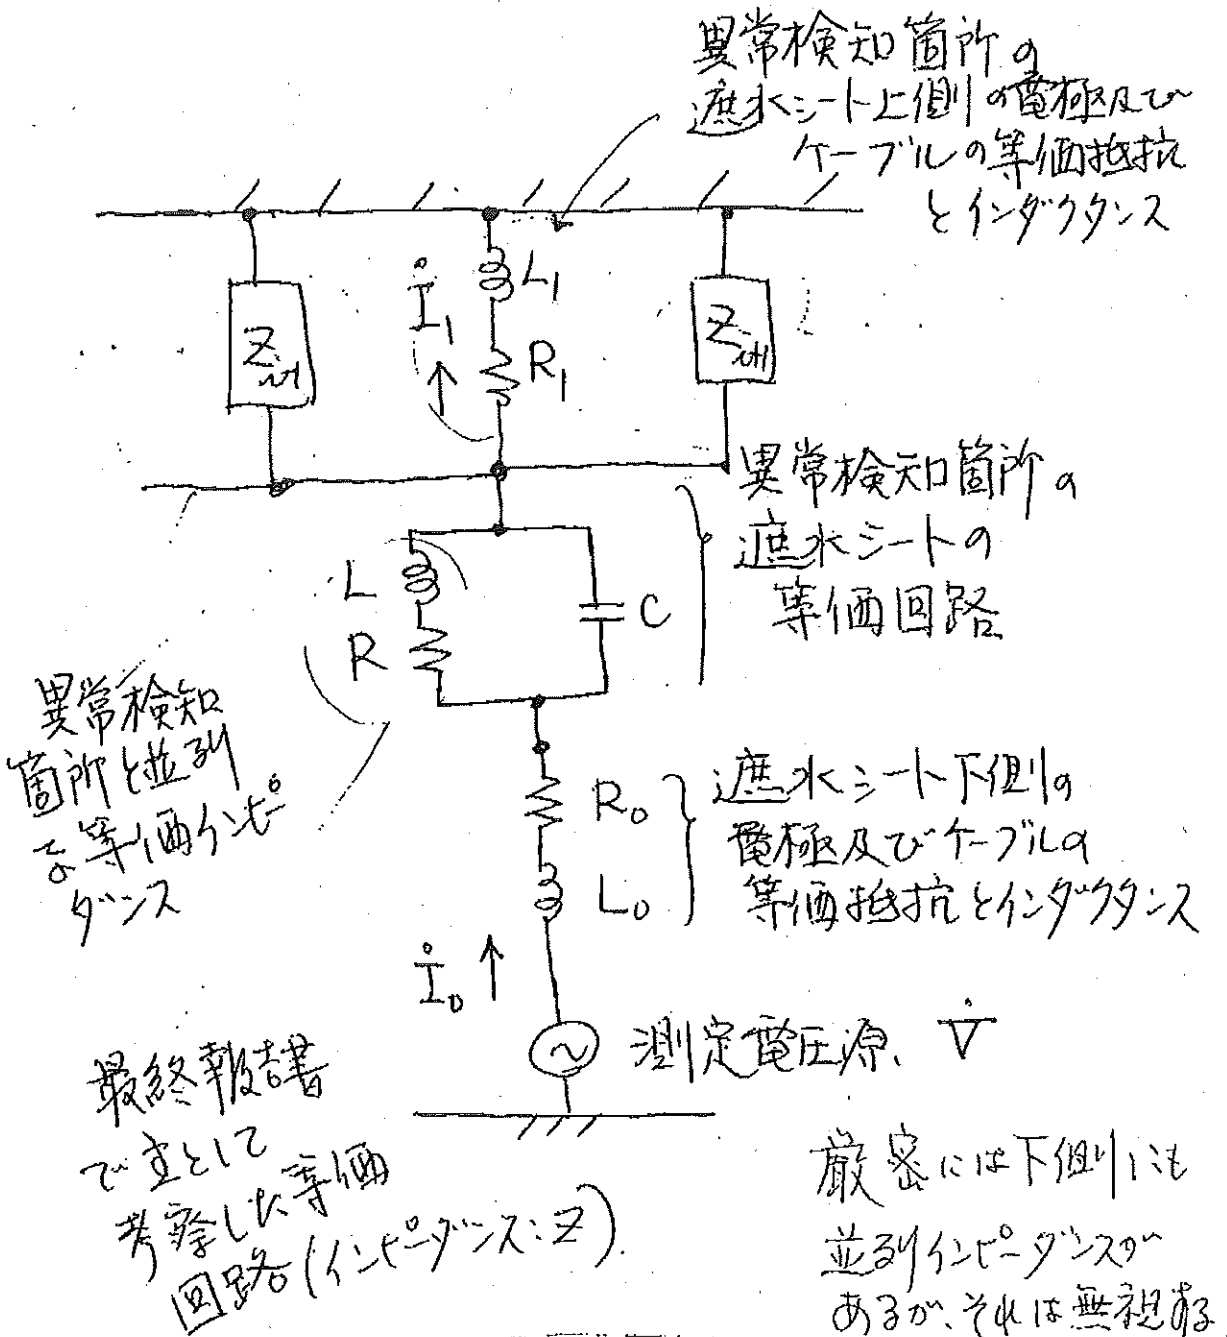 異常検知箇所の
遮水シート上側の電極及び
ケーブルの等価抵抗
とインダクタンス
L1
İ1
R1
Z
Z
異常検知箇所の
遮水シートの
等価回路
L
R
C
異常検知
箇所と並列
な等価インピー
ダンス
R0
L0
遮水シート下側の
電極及びケーブルの
等価抵抗とインダクタンス
İ0
測定電圧源、V̇
最終報告書
で主として
考察した等価
回路(インピーダンス:Z)
厳密には下側にも
並列インピーダンスが
あるが、それは無視する